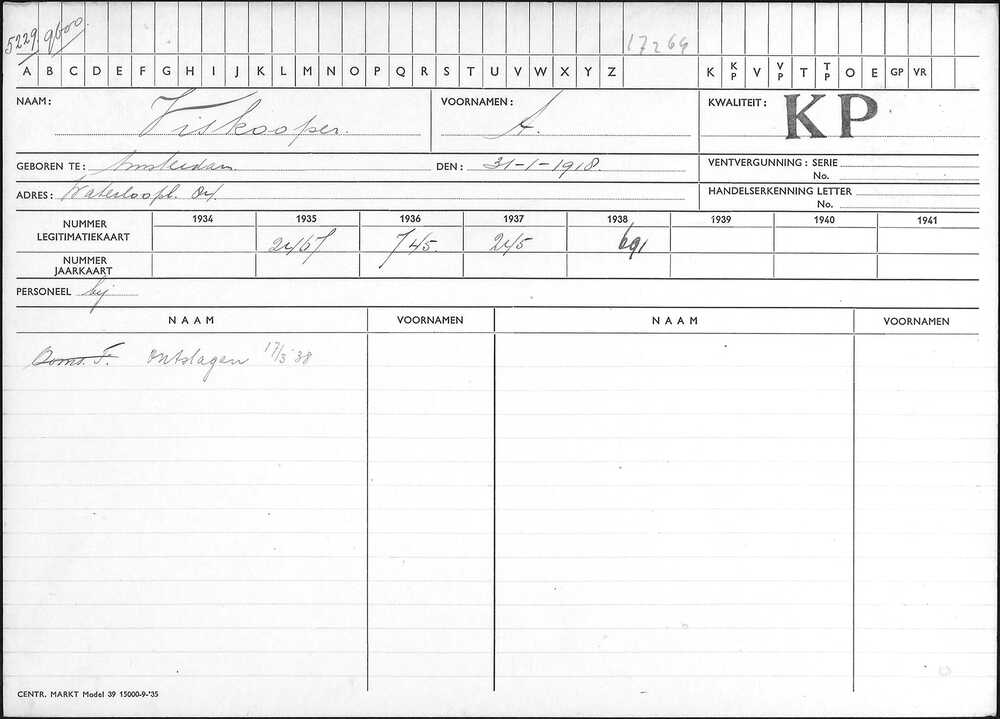 5229. 9600.
17269
A B C D E F G H I J K L M N O P Q R S T U V W X Y Z K KP V VP T TP O E GP VR
NAAM: Viskooper. VOORNAMEN: A. KWALITEIT: KP
GEBOREN TE: Amsterdam DEN: 31-1-1918. VENTVERGUNNING: SERIE
No.
ADRES: Waterloopl. HANDELSERKENNING LETTER
No.
1934 1935 1936 1937 1938 1939 1940 1941
NUMMER LEGITIMATIEKAART 745. 245 691
NUMMER JAARKAART
PERSONEEL bij
NAAM VOORNAMEN NAAM VOORNAMEN
Ooms. F. Ontslagen 17/3 '38
CENTR. MARKT Model 39 15000-9-'35